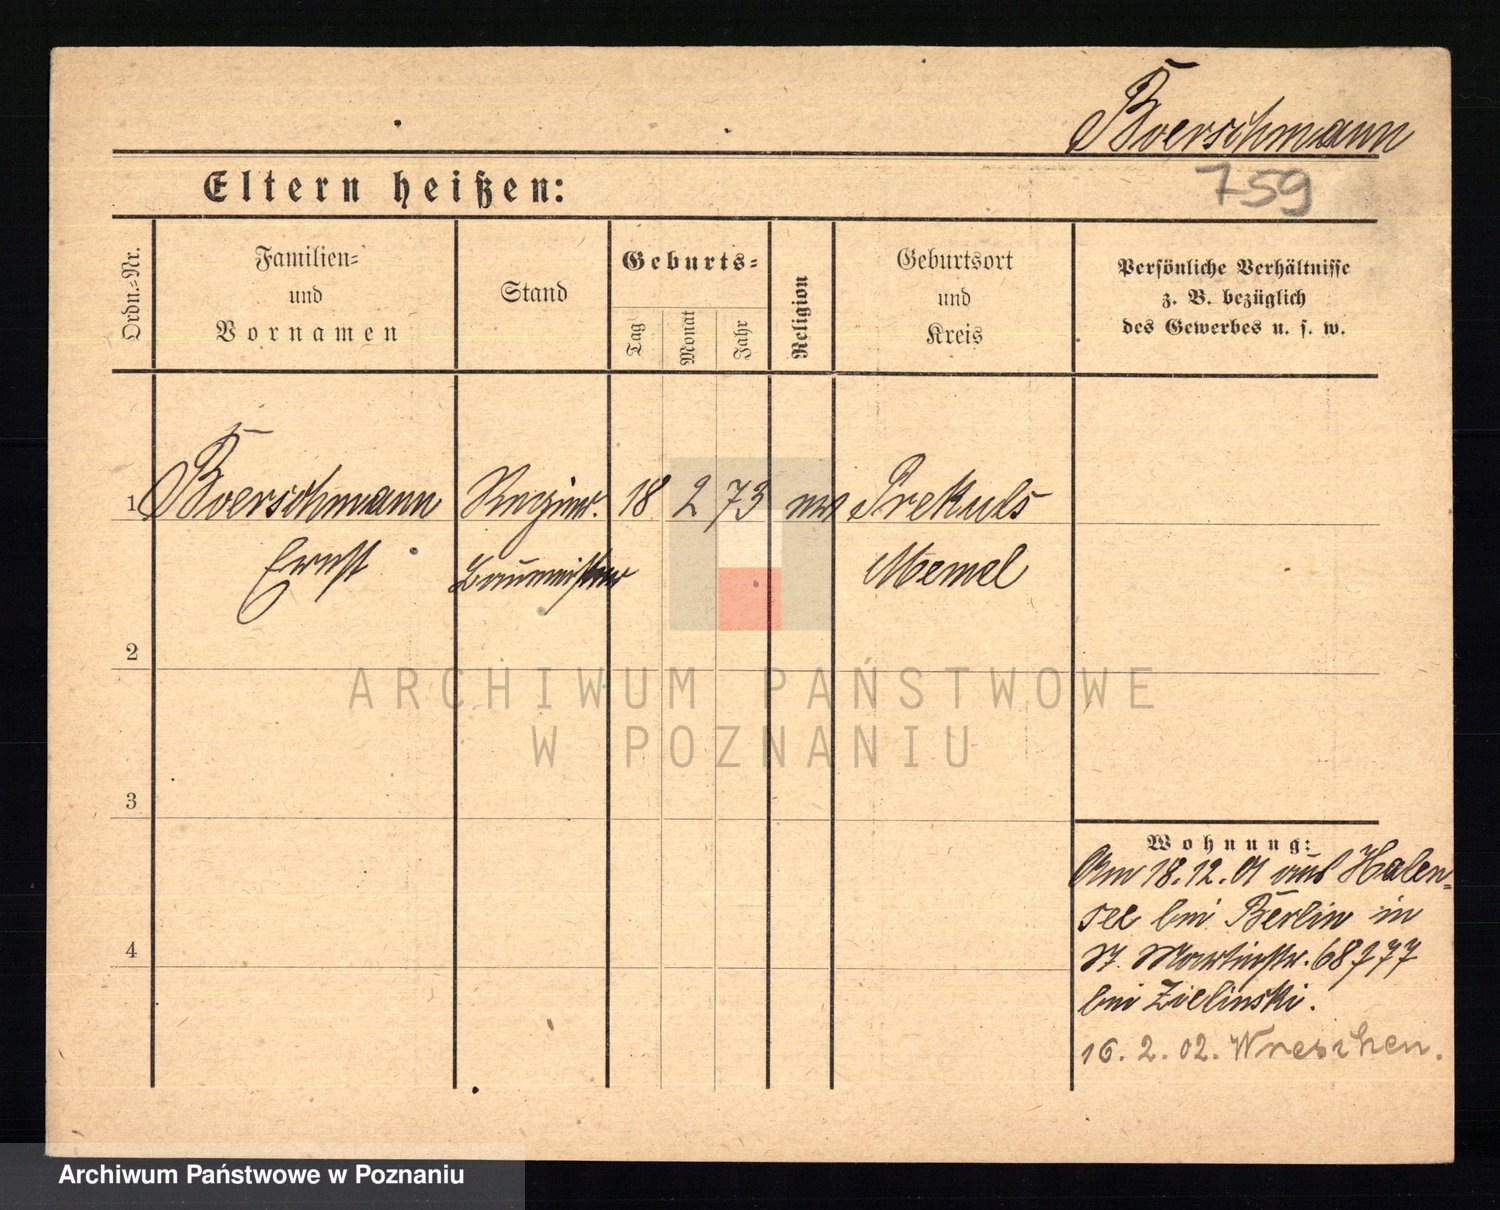 Boerschmann
759
Eltern heißen:
Ordn.-Nr.
Familien-
und
Vornamen
Stand
Geburts-
Tag
Monat
Jahr
Religion
Geburtsort
und
Kreis
Persönliche Verhältnisse
z. B. bezüglich
des Gewerbes u. s. w.
1 Boerschmann Regier. 18 2 73 ev Prekuls
Ernst Baumeister Memel
2
3
4
ARCHIWUM PAŃSTWOWE
W POZNANIU
Wohnung:
Am 18.12.01 aus Halen-
see bei Berlin in
St. Martinstr. 68
bei Zielinski.
16. 2. 02. Wreschen.
Archiwum Państwowe w Poznaniu